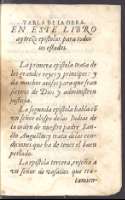 TABLA DE LA OBRA.
EN ESTE LIBRO
ay treze epistolas para todos
los estados.
La primera epistola trata de
los grandes reyes y principes: y
da muchos auisos para que sean
de Dios y administren
justicia.
La segunda epistola habla cõ
vn señor obispo de las Indias de
la orden de nuestro padre San-
cto Augustin: y trata de las con-
diciones que ha de tener el buen
perlado.
La epistola tercera, escriue a
vn señor de vasallos que